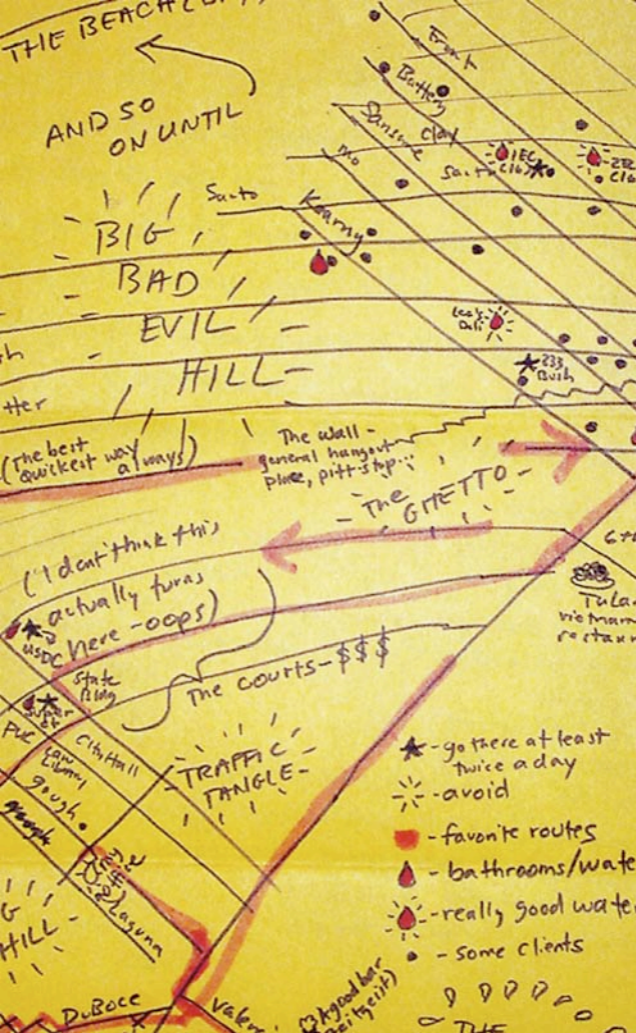 THE BEACH
AND SO
ON UNTIL
Front
Battery
Sansome
Clay
Mo
Sacto
1EC
Sacto
Kearny
BIG
BAD
EVIL
HILL
Lee's
Deli
233
Bush
tter
(The best
quickest way
always)
The wall -
general hangout
place, pitt-stop...
The
GHETTO
(I don't think this
actually turns
here - oops)
USDC
State
Bldg
The COURTS - $$$
Super
Ct
PUC
City Hall
Law
Library
gough
TRAFFIC
TANGLE
Laguna
HILL
DuBoce
Valen
(A good bar
Zeitgeist)
Tula
vietnam
restaur
- go there at least
twice a day
- avoid
- favorite routes
- bathrooms/wate
- really good wate
- some clients
THE